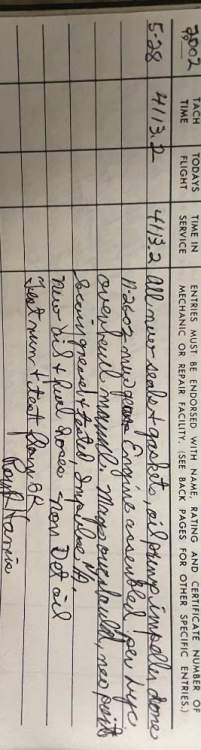 2002
19
TACH TIME
TODAYS FLIGHT
TIME IN SERVICE
ENTRIES MUST BE ENDORSED WITH NAME, RATING AND CERTIFICATE NUMBER OF
MECHANIC OR REPAIR FACILITY. (SEE BACK PAGES FOR OTHER SPECIFIC ENTRIES.)
5-28 4113.2 4113.2 All new seals & gaskets, oil pump impeller done
new Engine assembled per Lyc,
overhaul manual. Mags overhauled, new points
greased & tested, Impulse
New oil & fuel hoses - non Det oil
Test run & test OK